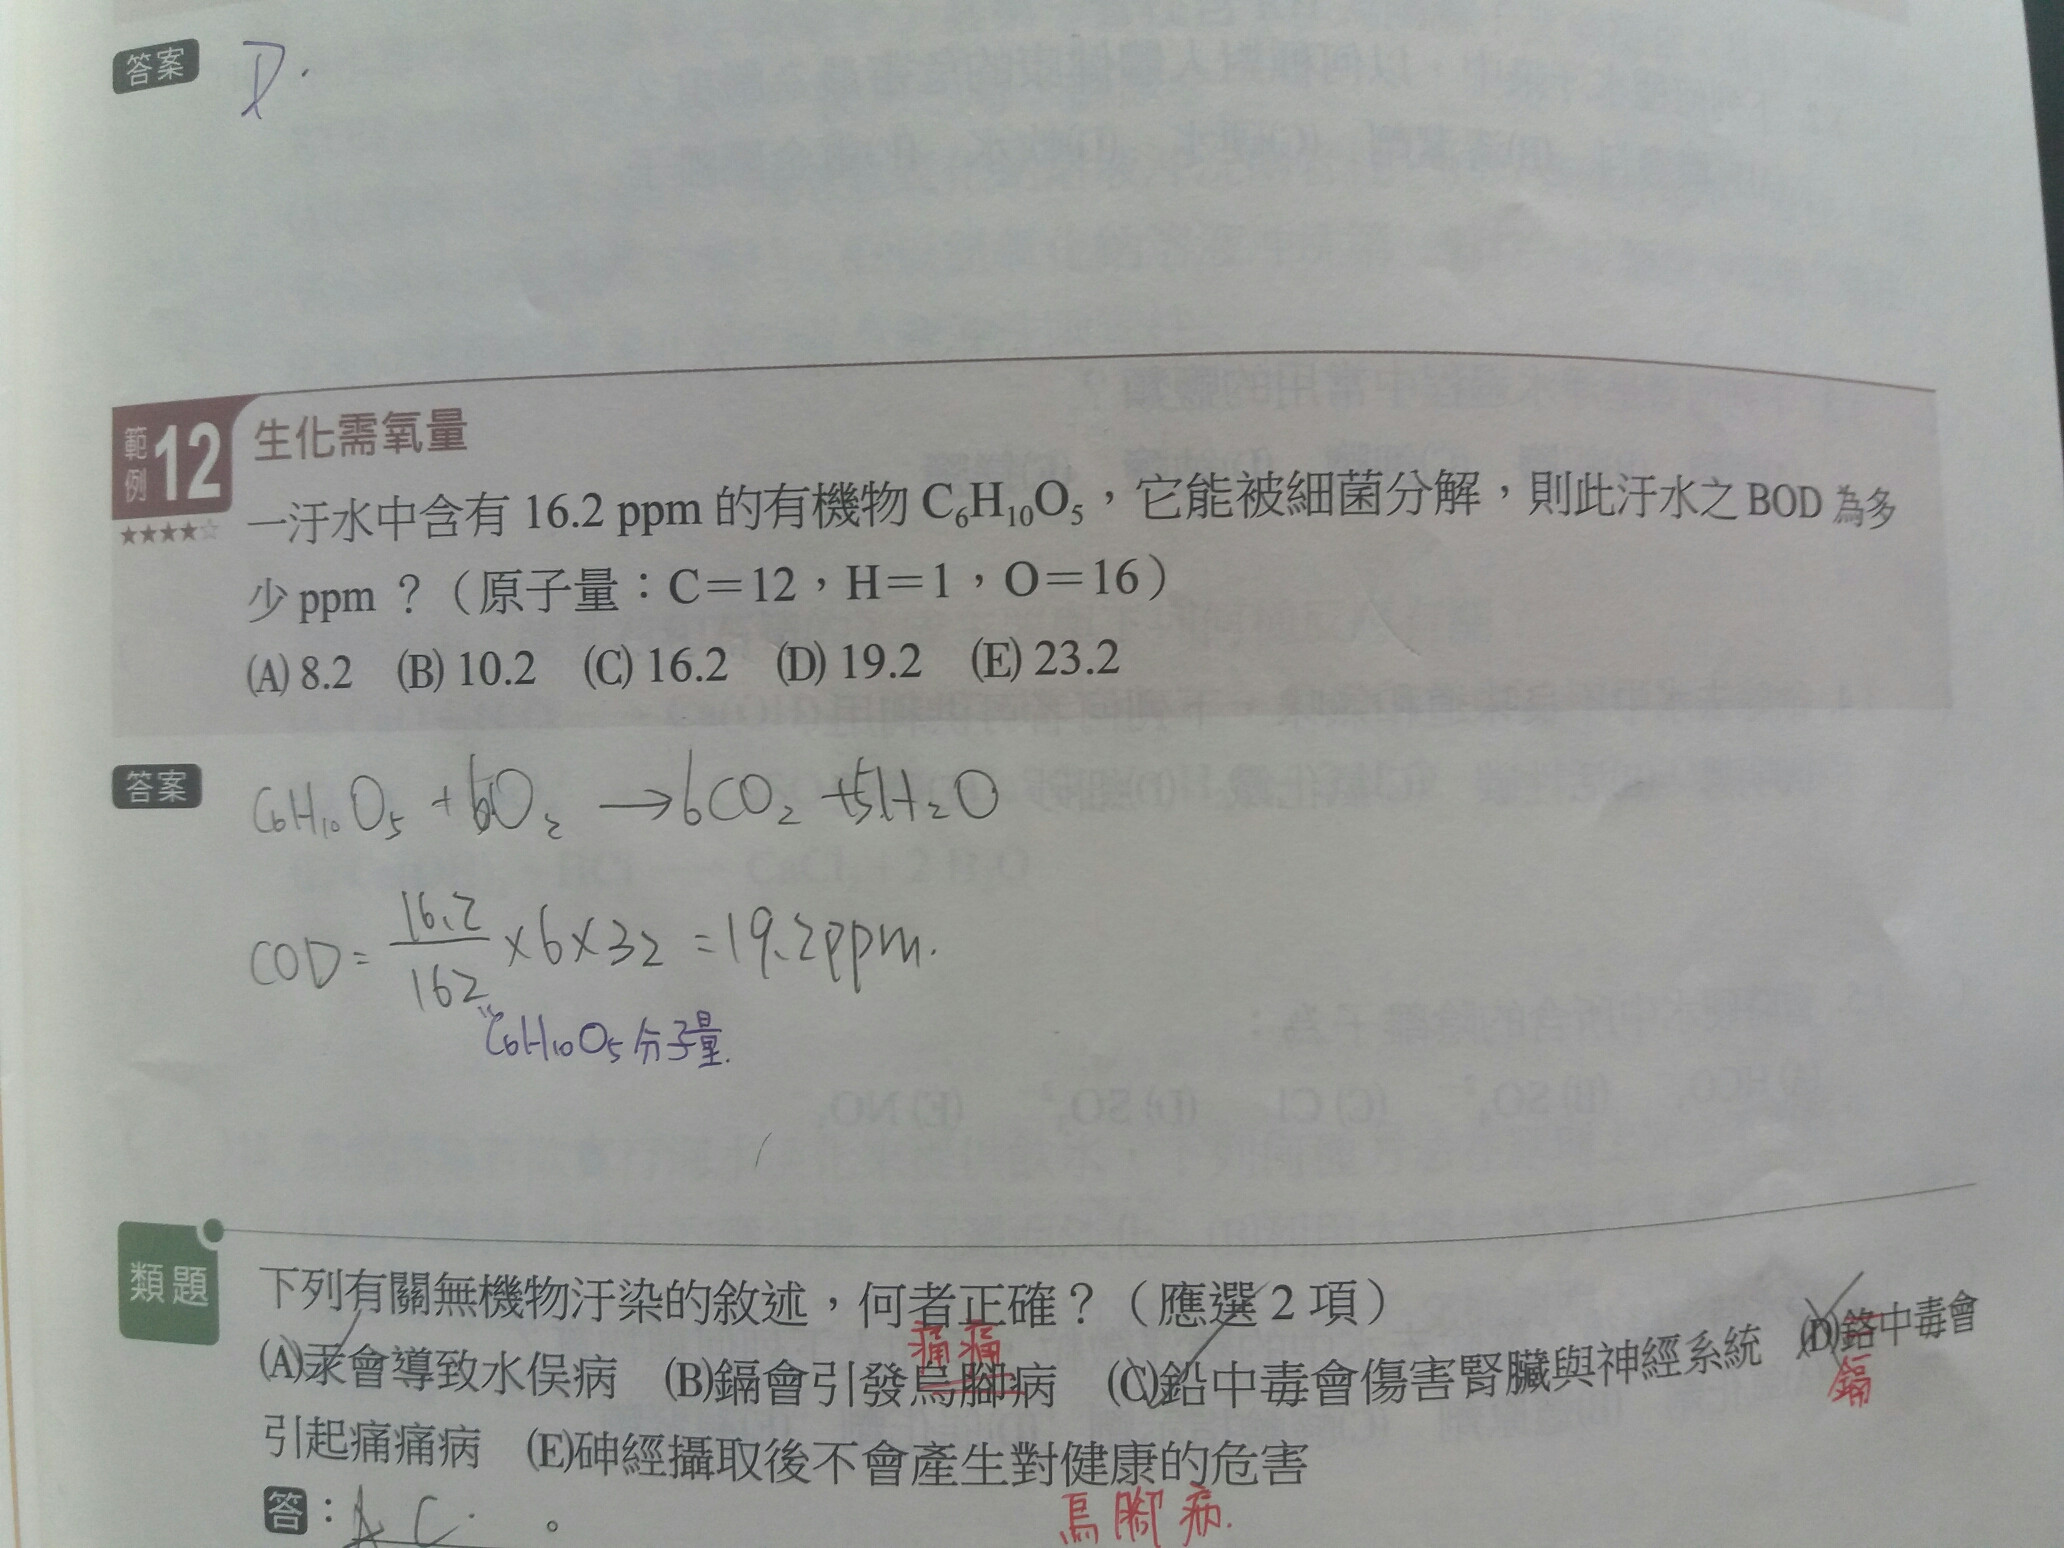 答案 D.
範例 12 生化需氧量
★★★★☆
一汙水中含有 16.2 ppm 的有機物 C₆H₁₀O₅，它能被細菌分解，則此汙水之 BOD 為多
少 ppm ？（原子量：C＝12，H＝1，O＝16）
(A) 8.2 (B) 10.2 (C) 16.2 (D) 19.2 (E) 23.2
答案 C₆H₁₀O₅ + 6O₂ → 6CO₂ + 5H₂O
COD = 16.2/162 × 6 × 32 = 19.2ppm.
C₆H₁₀O₅分子量.
類題 下列有關無機物汙染的敘述，何者正確？（應選 2 項）
痛痛
(A)汞會導致水俣病 (B)鎘會引發烏腳病 (C)鉛中毒會傷害腎臟與神經系統 (D)鉻中毒會
鎘
引起痛痛病 (E)砷經攝取後不會產生對健康的危害
答：A C. 。
烏腳病.